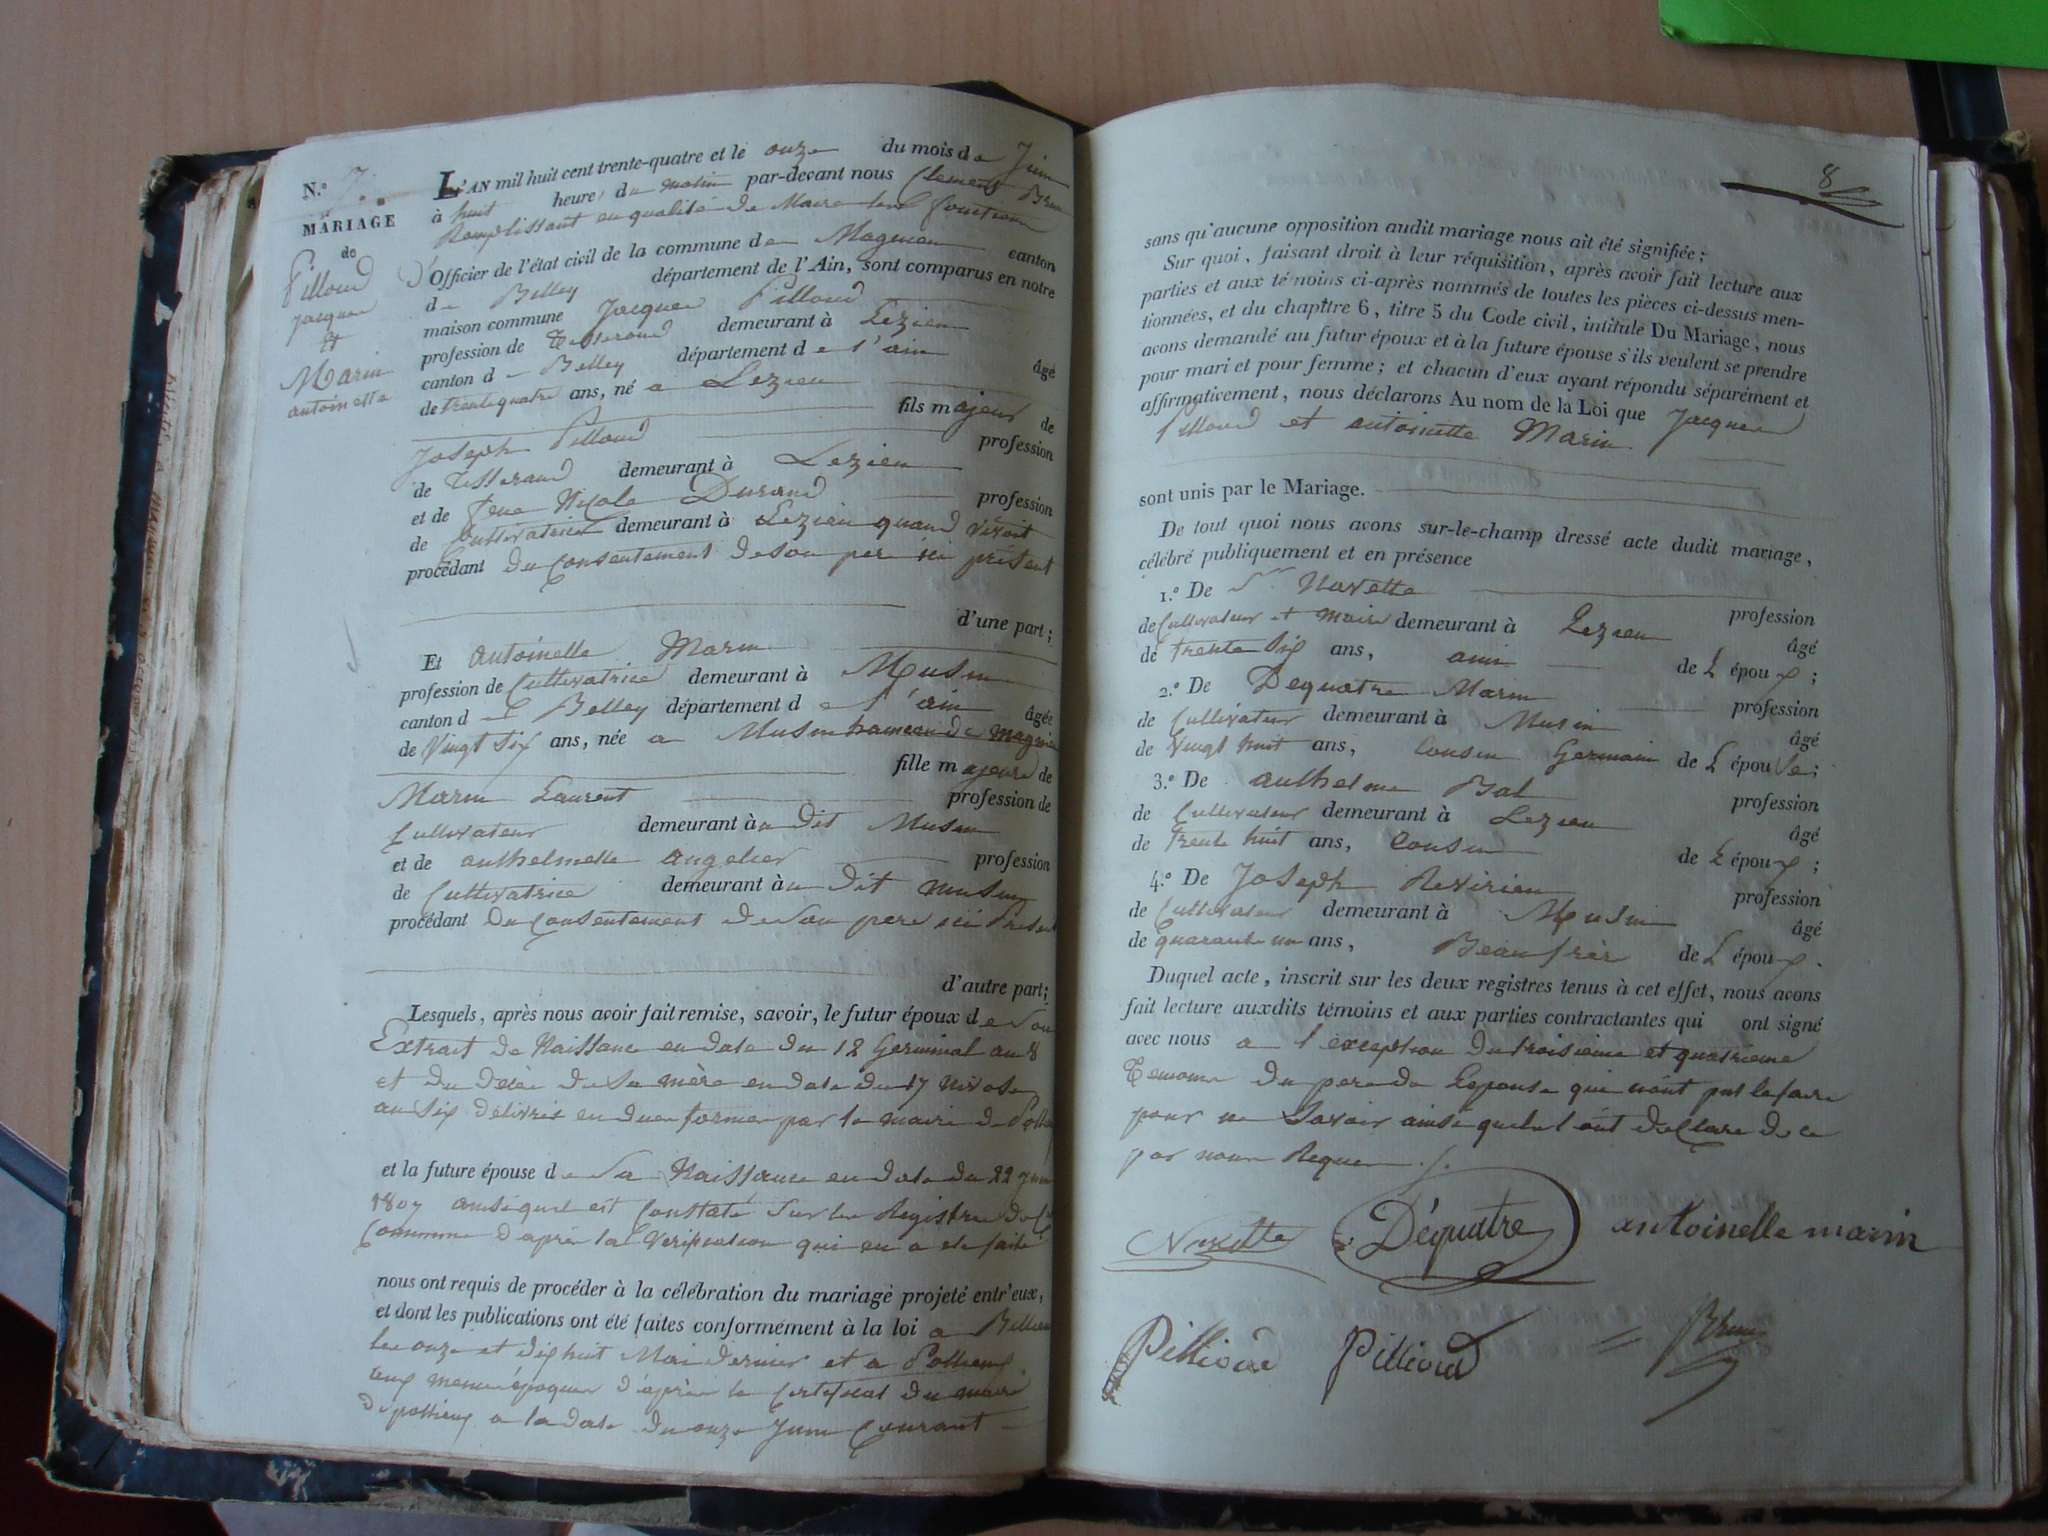 N.º 7.
MARIAGE
de
Pilloud
Jacques
Et
Marin
antoinette
L'AN mil huit cent trente-quatre et le onze du mois de Juin
à huit heures du matin par-devant nous Clement Brun
Remplissant en qualité de Maire les fonctions
d'Officier de l'état civil de la commune de Magnieu canton
de Belley département de l'Ain, sont comparus en notre
maison commune Jacques Pilloud
profession de Tisserand demeurant à Lezieu
canton de Belley département de l'ain âgé
de trente quatre ans, né a Lezieu
fils majeur de
Joseph Pilloud profession
de Tisserand demeurant à Lezieu
et de feue Nicole Durand profession
de Cultivatrice demeurant à Lezieu quand vivoit
procédant du Consentement de son pere ici présent
d'une part;
Et antoinette Marin
profession de Cultivatrice demeurant à Musin
canton de Belley département de l'ain âgée
de vingt six ans, née a Musin hameau de magnieu
fille majeure de
Marin Laurent profession de
Cultivateur demeurant à au dit Musin
et de anthelmette angelier profession
de Cultivatrice demeurant à au dit musin
procédant du Consentement de son pere ici Présent
d'autre part;
Lesquels, après nous avoir fait remise, savoir, le futur époux de son
Extrait de Naissance en date du 12 Germinal an 8
et du décès de sa mère en date du 17 nivose
an six délivrés en due forme par le maire de
et la future épouse de sa Naissance en date du 22
1807 ainsi quil est Constaté sur les Registres de la
Commune d'après la Vérification qui en a été faite
nous ont requis de procéder à la célébration du mariage projeté entr'eux,
et dont les publications ont été faites conformément à la loi a
les onze et dix huit Mai dernier et a Pollieux
aux memes époques d'après le Certificat du maire
de pollieux a la date du onze Juin Courant
8
sans qu'aucune opposition audit mariage nous ait été signifiée;
Sur quoi, faisant droit à leur réquisition, après avoir fait lecture aux
parties et aux témoins ci-après nommés de toutes les pièces ci-dessus men-
tionnées, et du chapitre 6, titre 5 du Code civil, intitulé Du Mariage, nous
avons demandé au futur époux et à la future épouse s'ils veulent se prendre
pour mari et pour femme; et chacun d'eux ayant répondu séparément et
affirmativement, nous déclarons Au nom de la Loi que Jacques
Pilloud et antoinette Marin
sont unis par le Mariage.
De tout quoi nous avons sur-le-champ dressé acte dudit mariage,
célébré publiquement et en présence
1.º De Sr. Navette profession
de Cultivateur et maire demeurant à Lezieu âgé
de trente six ans, ami de L époux;
2.º De Dequatre Marin profession
de Cultivateur demeurant à Musin âgé
de Vingt huit ans, Cousin Germain de L épouse;
3.º De anthelme Bal profession
de Cultivateur demeurant à Lezieu âgé
de trente huit ans, Cousin de L époux;
4.º De Joseph Revirieu profession
de Cultivateur demeurant à Musin âgé
de quarante un ans, Beaufrèr de L époux.
Duquel acte, inscrit sur les deux registres tenus à cet effet, nous avons
fait lecture auxdits témoins et aux parties contractantes qui ont signé
avec nous a l'exception du troisieme et quatrieme
Temoins du pere de Lepouse qui n'ont pas le faire
pour ne Savoir ainsi quils l'ont déClaré de ce
par nous Requis.
Navette Déquatre antoinette marin
Pillioud Pillioud Brun